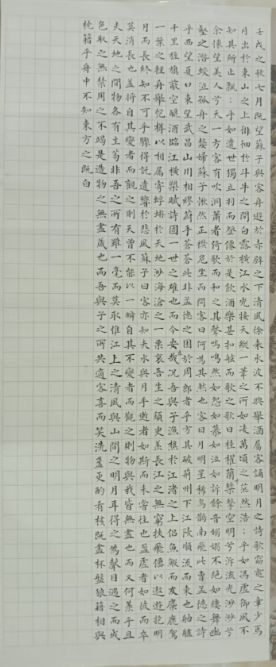 壬戌之秋七月既望蘇子與客舟遊於赤壁之下清風徐來水波不興舉酒屬客誦明月之詩歌窈窕之章少焉
月出於東山之上徘徊於斗牛之間白露橫江水光接天縱一葦之所如凌萬頃之茫然浩浩乎如馮虛御風不
知其所止飄飄乎如遺世獨立羽化而登僊於是飲酒樂甚扣舷而歌之歌曰桂櫂蘭槳擊空明兮泝流光渺渺兮
余懷望美人兮天一方客有吹洞簫者倚歌而和之其聲嗚嗚然如怨如慕如泣如訴餘音嫋嫋不絕如縷舞幽
壑之潛蛟泣孤舟之嫠婦蘇子愀然正襟危坐而問客曰何為其然也客曰月明星稀烏鵲南飛此非孟德之詩
乎西望夏口東望武昌山川相繆鬱乎蒼蒼此非孟德之困於周郎者乎方其破荊州下江陵順流而東也舳艫
千里旌旗蔽空釃酒臨江橫槊賦詩固一世之雄也而今安在哉況吾與子漁樵於江渚之上侶魚蝦而友麋鹿駕
一葉之輕舟舉匏樽以相屬寄蜉蝣於天地渺滄海之一粟哀吾生之須臾羨長江之無窮挾飛僊以遨遊抱明
月而長終知不可乎驟得託遺響於悲風蘇子曰客亦知夫水與月乎逝者如斯而未嘗往也盈虛者如彼而卒
莫消長也蓋將自其變者而觀之則天地曾不能以一瞬自其不變者而觀之則物與我皆無盡也而又何羨乎且
夫天地之間物各有主苟非吾之所有雖一毫而莫取惟江上之清風與山間之明月耳得之而為聲目遇之而成
色取之無禁用之不竭是造物者之無盡藏也而吾與子之所共適客喜而笑洗盞更酌肴核既盡杯盤狼籍相與
枕藉乎舟中不知東方之既白